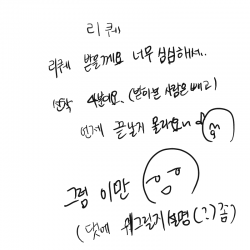 리퀘
리퀘 받을께요 너무 심심해서..
선착 4분데요. (받아본 사람은 빼고)
언제 끝날지 몰라요ㅠ
그럼 이만
(댓에 뭐그릴지 설명(?)좀)